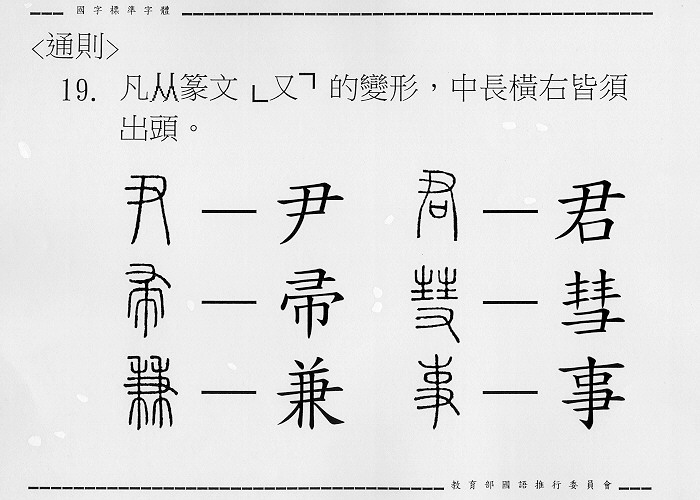 國字標準字體
<通則>
19. 凡从篆文「又」的變形，中長橫右皆須
出頭。
尹 — 尹 君 — 君
帚 — 帚 彗 — 彗
兼 — 兼 事 — 事
教育部國語推行委員會